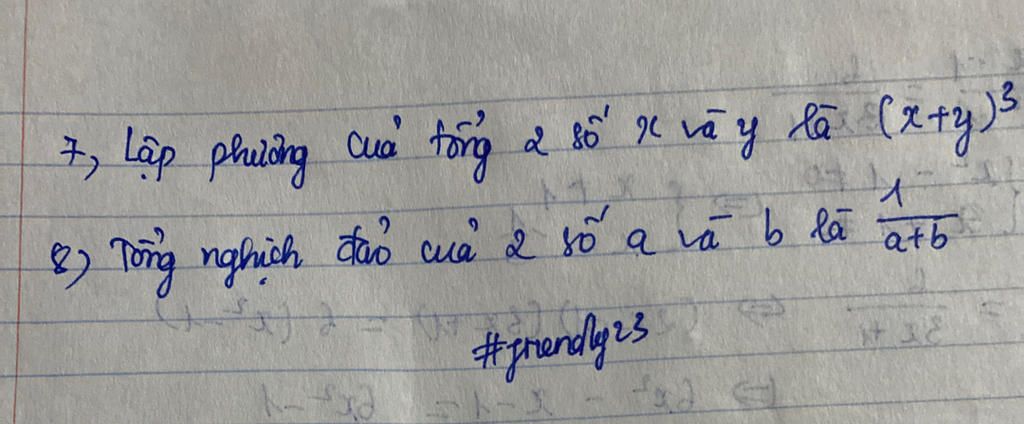 7, Lập phương của tổng 2 số x và y là (x+y)³
8) Tổng nghịch đảo của 2 số a và b là 1/(a+b)
#friendly23